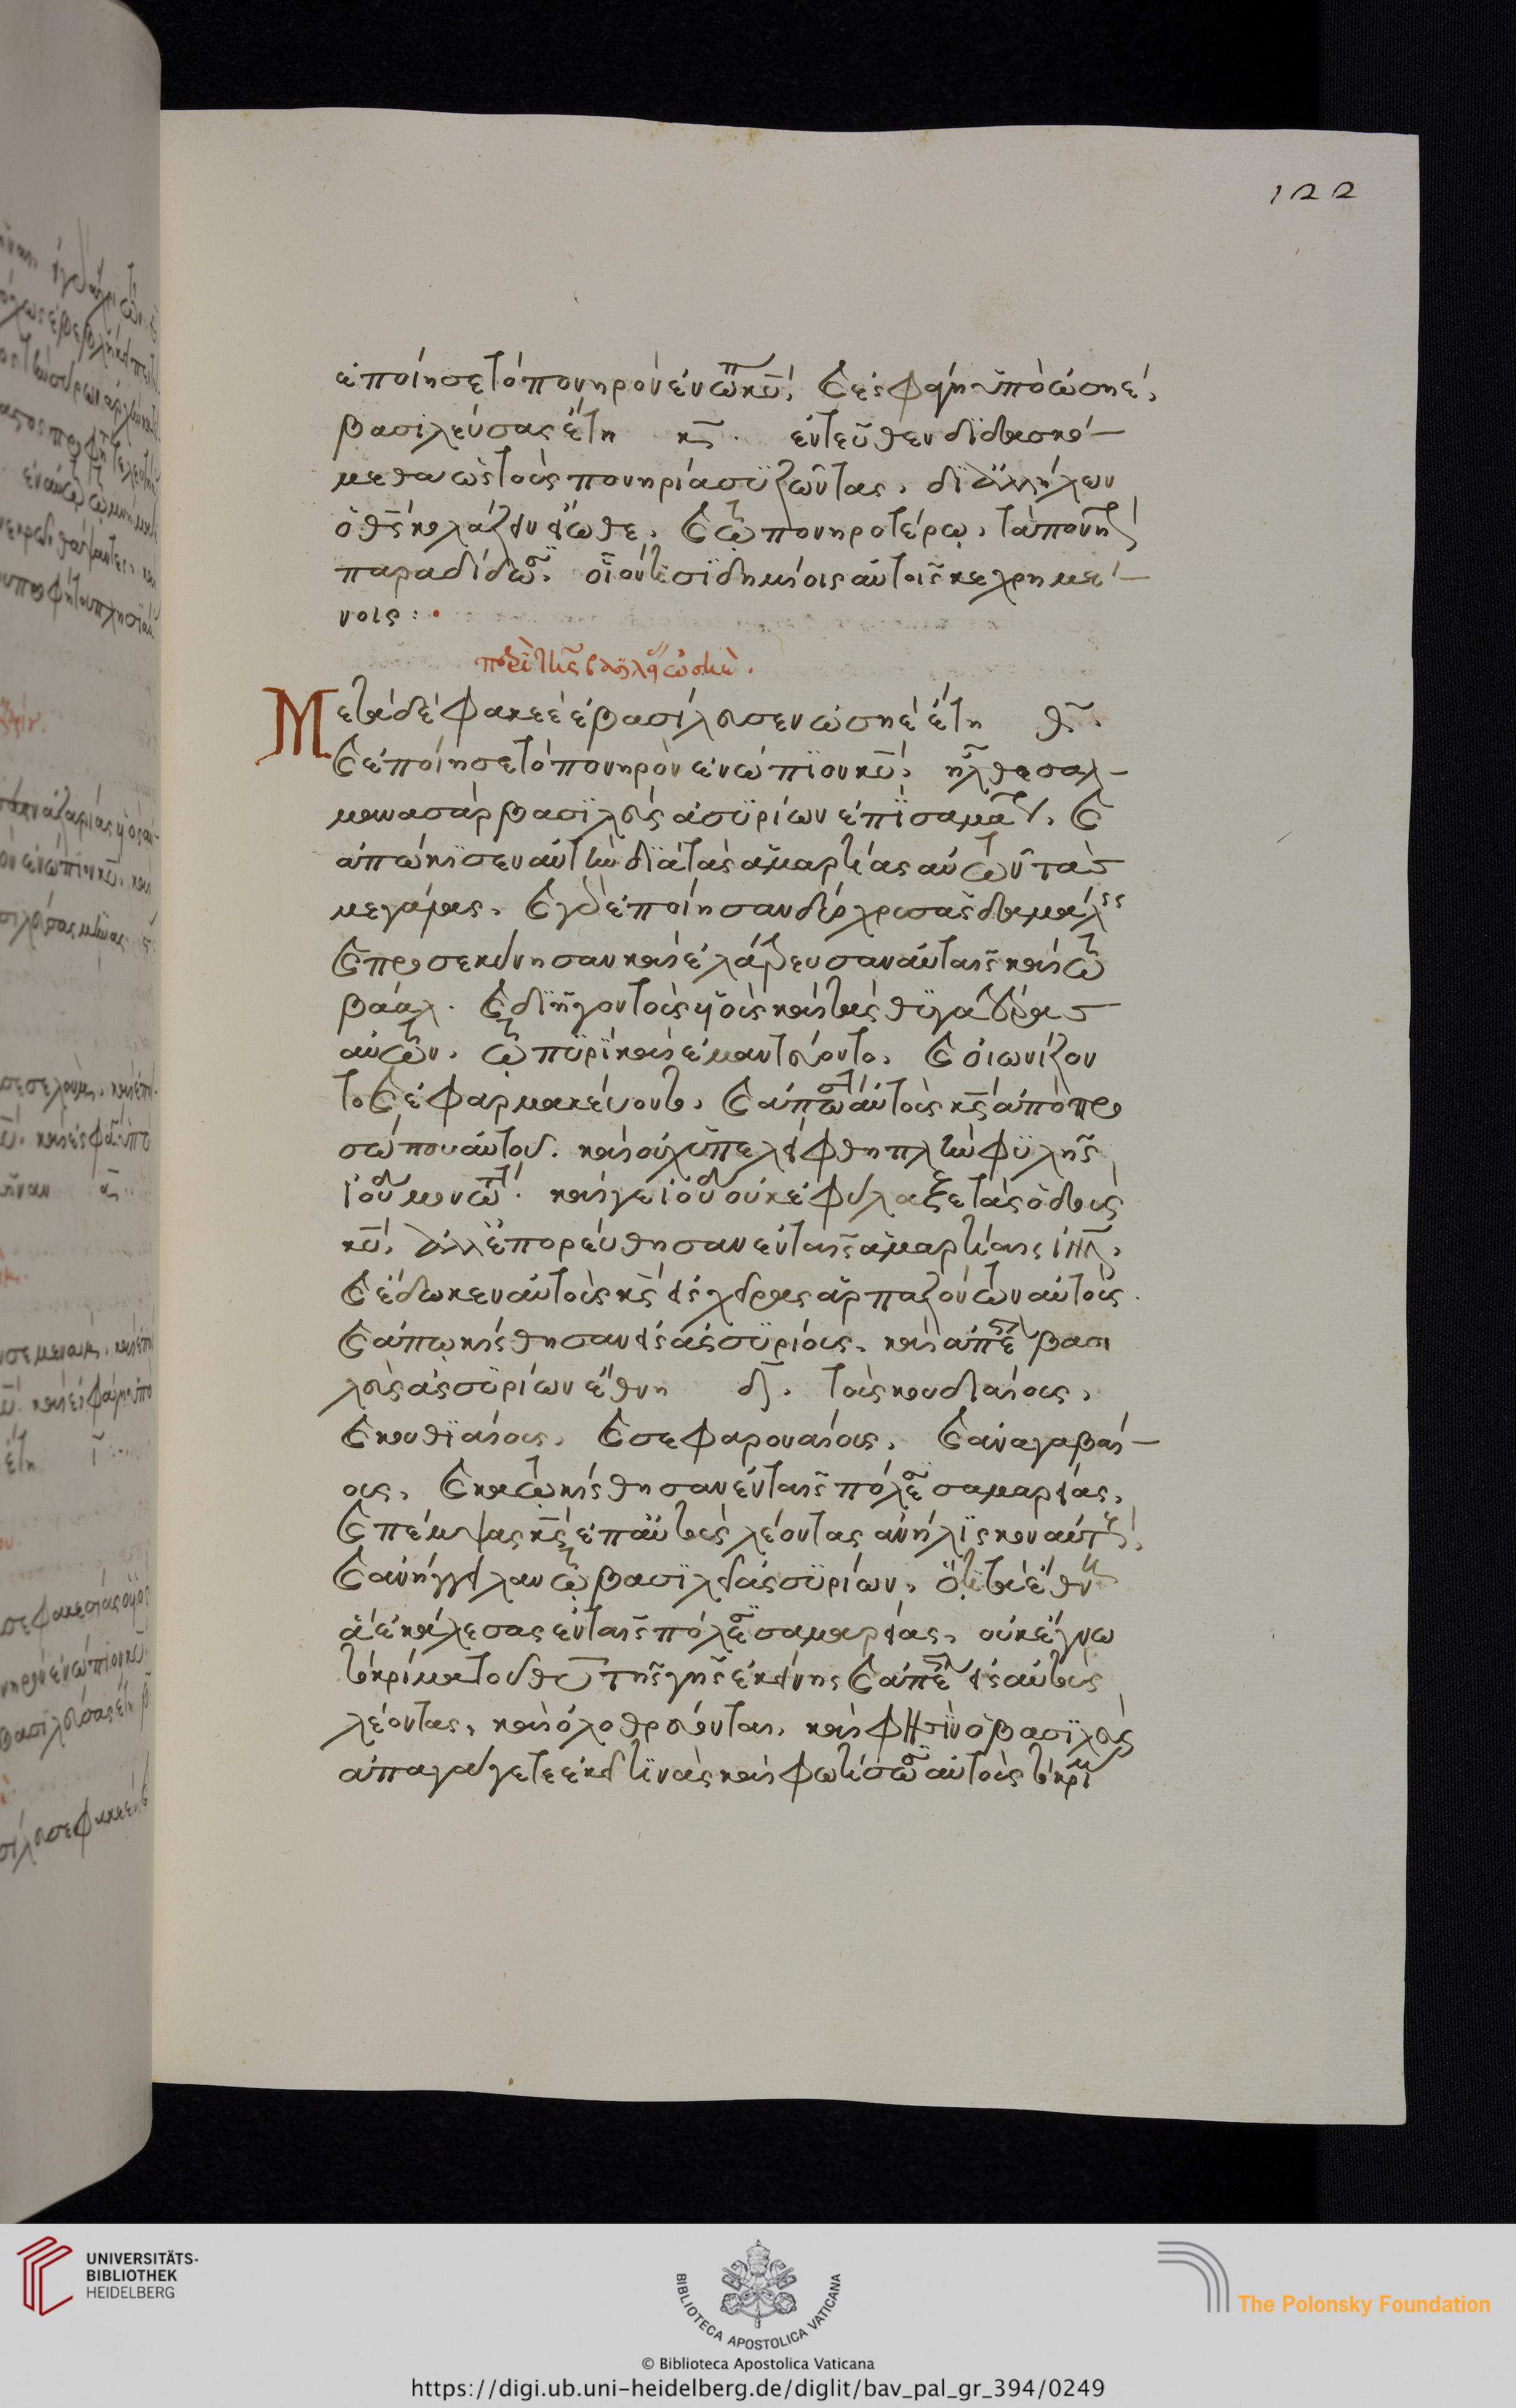 122
ἐποίησε τὸ πονηρὸν ἐνώπ κῦ, καὶ ἐσφάγη ὑπὸ ὠσηὲ,
βασιλεύσας ἔτη κ̅. ἐντεῦθεν διδασκό-
μεθα ὡς τοὺς πονηρία συζῶντας, δι ἀλλήλων
ὁ θς κολάζειν εἴωθε. καὶ τῶ πονηροτέρω, τὰ πονη
παραδίδωσι. οἷον τισὶ δημίοις αὐτοῖς κεχρημέ-
νοις:
περὶ τῆς βασιλεί ὠσηὲ.
Μετὰ δὲ φακεὲ ἐβασίλευσεν ὠσηὲ ἔτη θ̅.
καὶ ἐποίησε τὸ πονηρὸν ἐνώπιον κῦ, ἦλθε σαλ-
μανασὰρ βασιλεὺς ἀσυρίων ἐπὶ σαμάρειαν, καὶ
ἀπώκισεν αὐτὴν διὰ τὰς ἁμαρτίας αὐτῶν τὰς
μεγάλας. καὶ γὰρ ἐποίησαν δύο χρυσὰς δαμάλεις
καὶ προσεκύνησαν καὶ ἐλάτρευσαν αὐταῖς καὶ τῶ
βάαλ. καὶ διῆγον τοὺς υἱοὺς καὶ τὰς θυγατέρας
αὐτῶν, τῶ πυρὶ καὶ ἐμαντεύοντο, καὶ οἰωνίζον
το καὶ ἐφαρμακεύοντο, καὶ ἀπώσατο αὐτοὺς κς ἀπὸ προ
σώπου αὐτοῦ. καὶ οὐχ ὑπελείφθη πλὴν φυλῆς
ἰούδα μονωτ. καί γε ἰούδα οὐκ ἐφύλαξε τὰς ὁδοὺς
κῦ, ἀλλ ἐπορεύθησαν ἐν ταῖς ἁμαρτίαις ιηλ,
καὶ ἔδωκεν αὐτοὺς κς εἰς χεῖρας ἁρπαζόντων αὐτούς.
καὶ ἀπωκίσθησαν εἰς ἀσσυρίους. καὶ ἀπέστειλε βασι
λεὺς ἀσσυρίων ἔθνη δ̅. τοὺς χουδιαίους,
καὶ κουθιαίους, καὶ σεφαρουαίους, καὶ ἀναγαβαί-
ους, καὶ κατωκίσθησαν ἐν ταῖς πόλεσι σαμαρείας,
καὶ πέμψας κς ἐπ αὐτοὺς λέοντας ἀνήλισκον αὐτούς,
καὶ ἀνήγγειλαν τῶ βασιλεῖ ἀσσυρίων, ὅτι τὰ ἔθνη
ἃ ἐκάλεσας ἐν ταῖς πόλεσι σαμαρείας, οὐκ ἔγνω
τὸ κρίμα τοῦ θῦ τῆς γῆς ἐκείνης καὶ ἀπέστειλεν εἰς αὐτοὺς
λέοντας, καὶ ὀλοθρεύονται. καὶ φησὶν ὁ βασιλεὺς
ἀπαγάγετε ἐκεῖ τινὰς καὶ φωτίσωσιν αὐτοὺς τὸ κρίμα
UNIVERSITÄTS-
BIBLIOTHEK
HEIDELBERG
BIBLIOTECA APOSTOLICA VATICANA
The Polonsky Foundation
© Biblioteca Apostolica Vaticana
https://digi.ub.uni-heidelberg.de/diglit/bav_pal_gr_394/0249